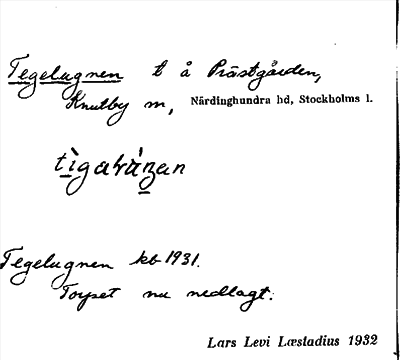 Tegelugnen t å Prästgården,
Knutby sn, Närdinghundra hd, Stockholms l.
Tegelugnen kb 1931.
Torpet nu nedlagt.
Lars Levi Læstadius 1932